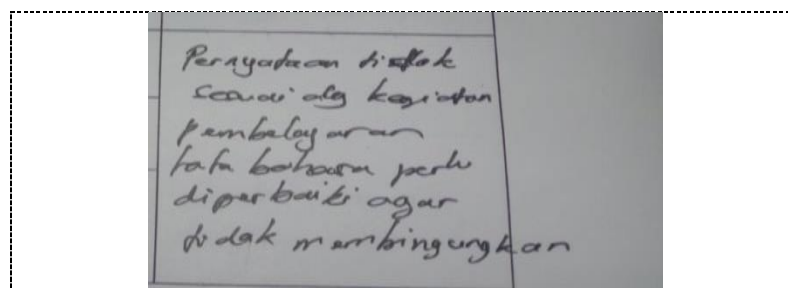 Pernyataan tidak
sesuai dg kegiatan
pembelajaran
tata bahasa perlu
diperbaiki agar
tidak membingungkan